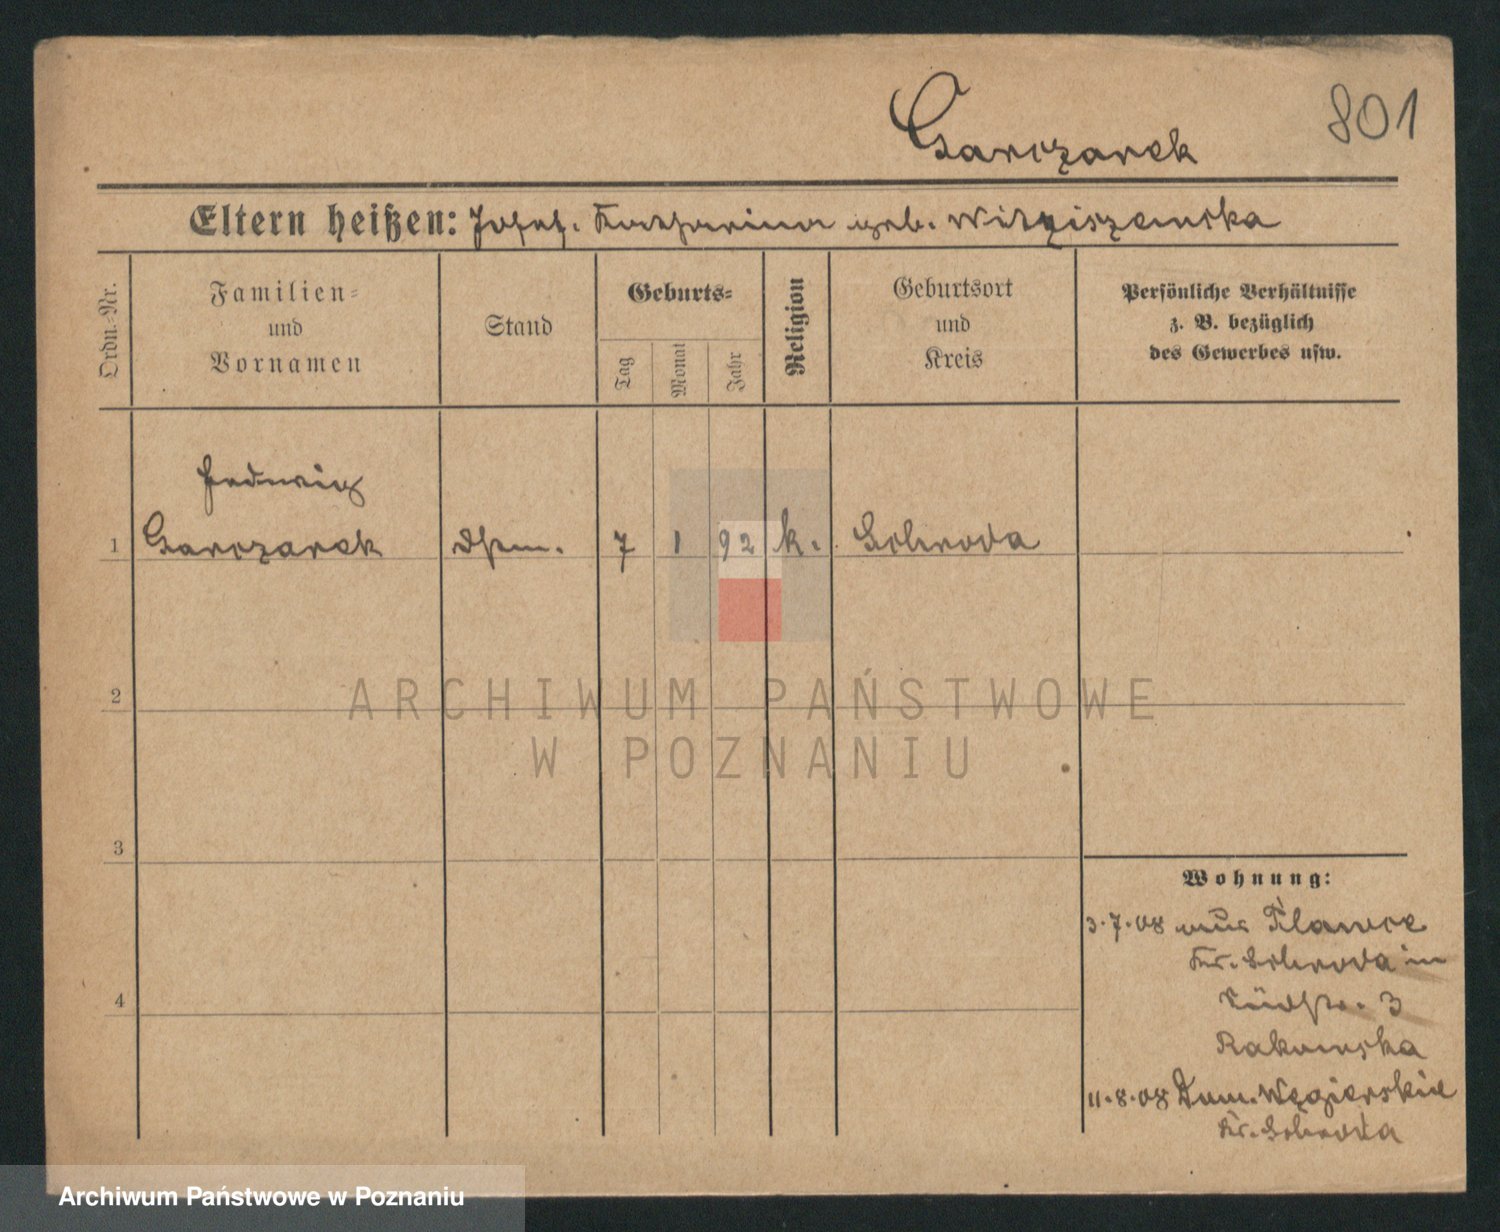 801
Garczarek
Eltern heißen: Josef. Katharina geb.
Ordn.-Nr.
Familien- und Vornamen
Stand
Geburts-
Tag
Monat
Jahr
Religion
Geburtsort und Kreis
Persönliche Verhältnisse
z. B. bezüglich
des Gewerbes usw.
Hedwig
1 Garczarek 7 1 92 k. Schroda
2
ARCHIWUM PAŃSTWOWE
W POZNANIU
3
Wohnung:
3.7.08 aus Pławce
Kr. Schroda in
4
3
Rakowska
11.8.08 Dom. Węgierskie
Kr. Schroda
Archiwum Państwowe w Poznaniu